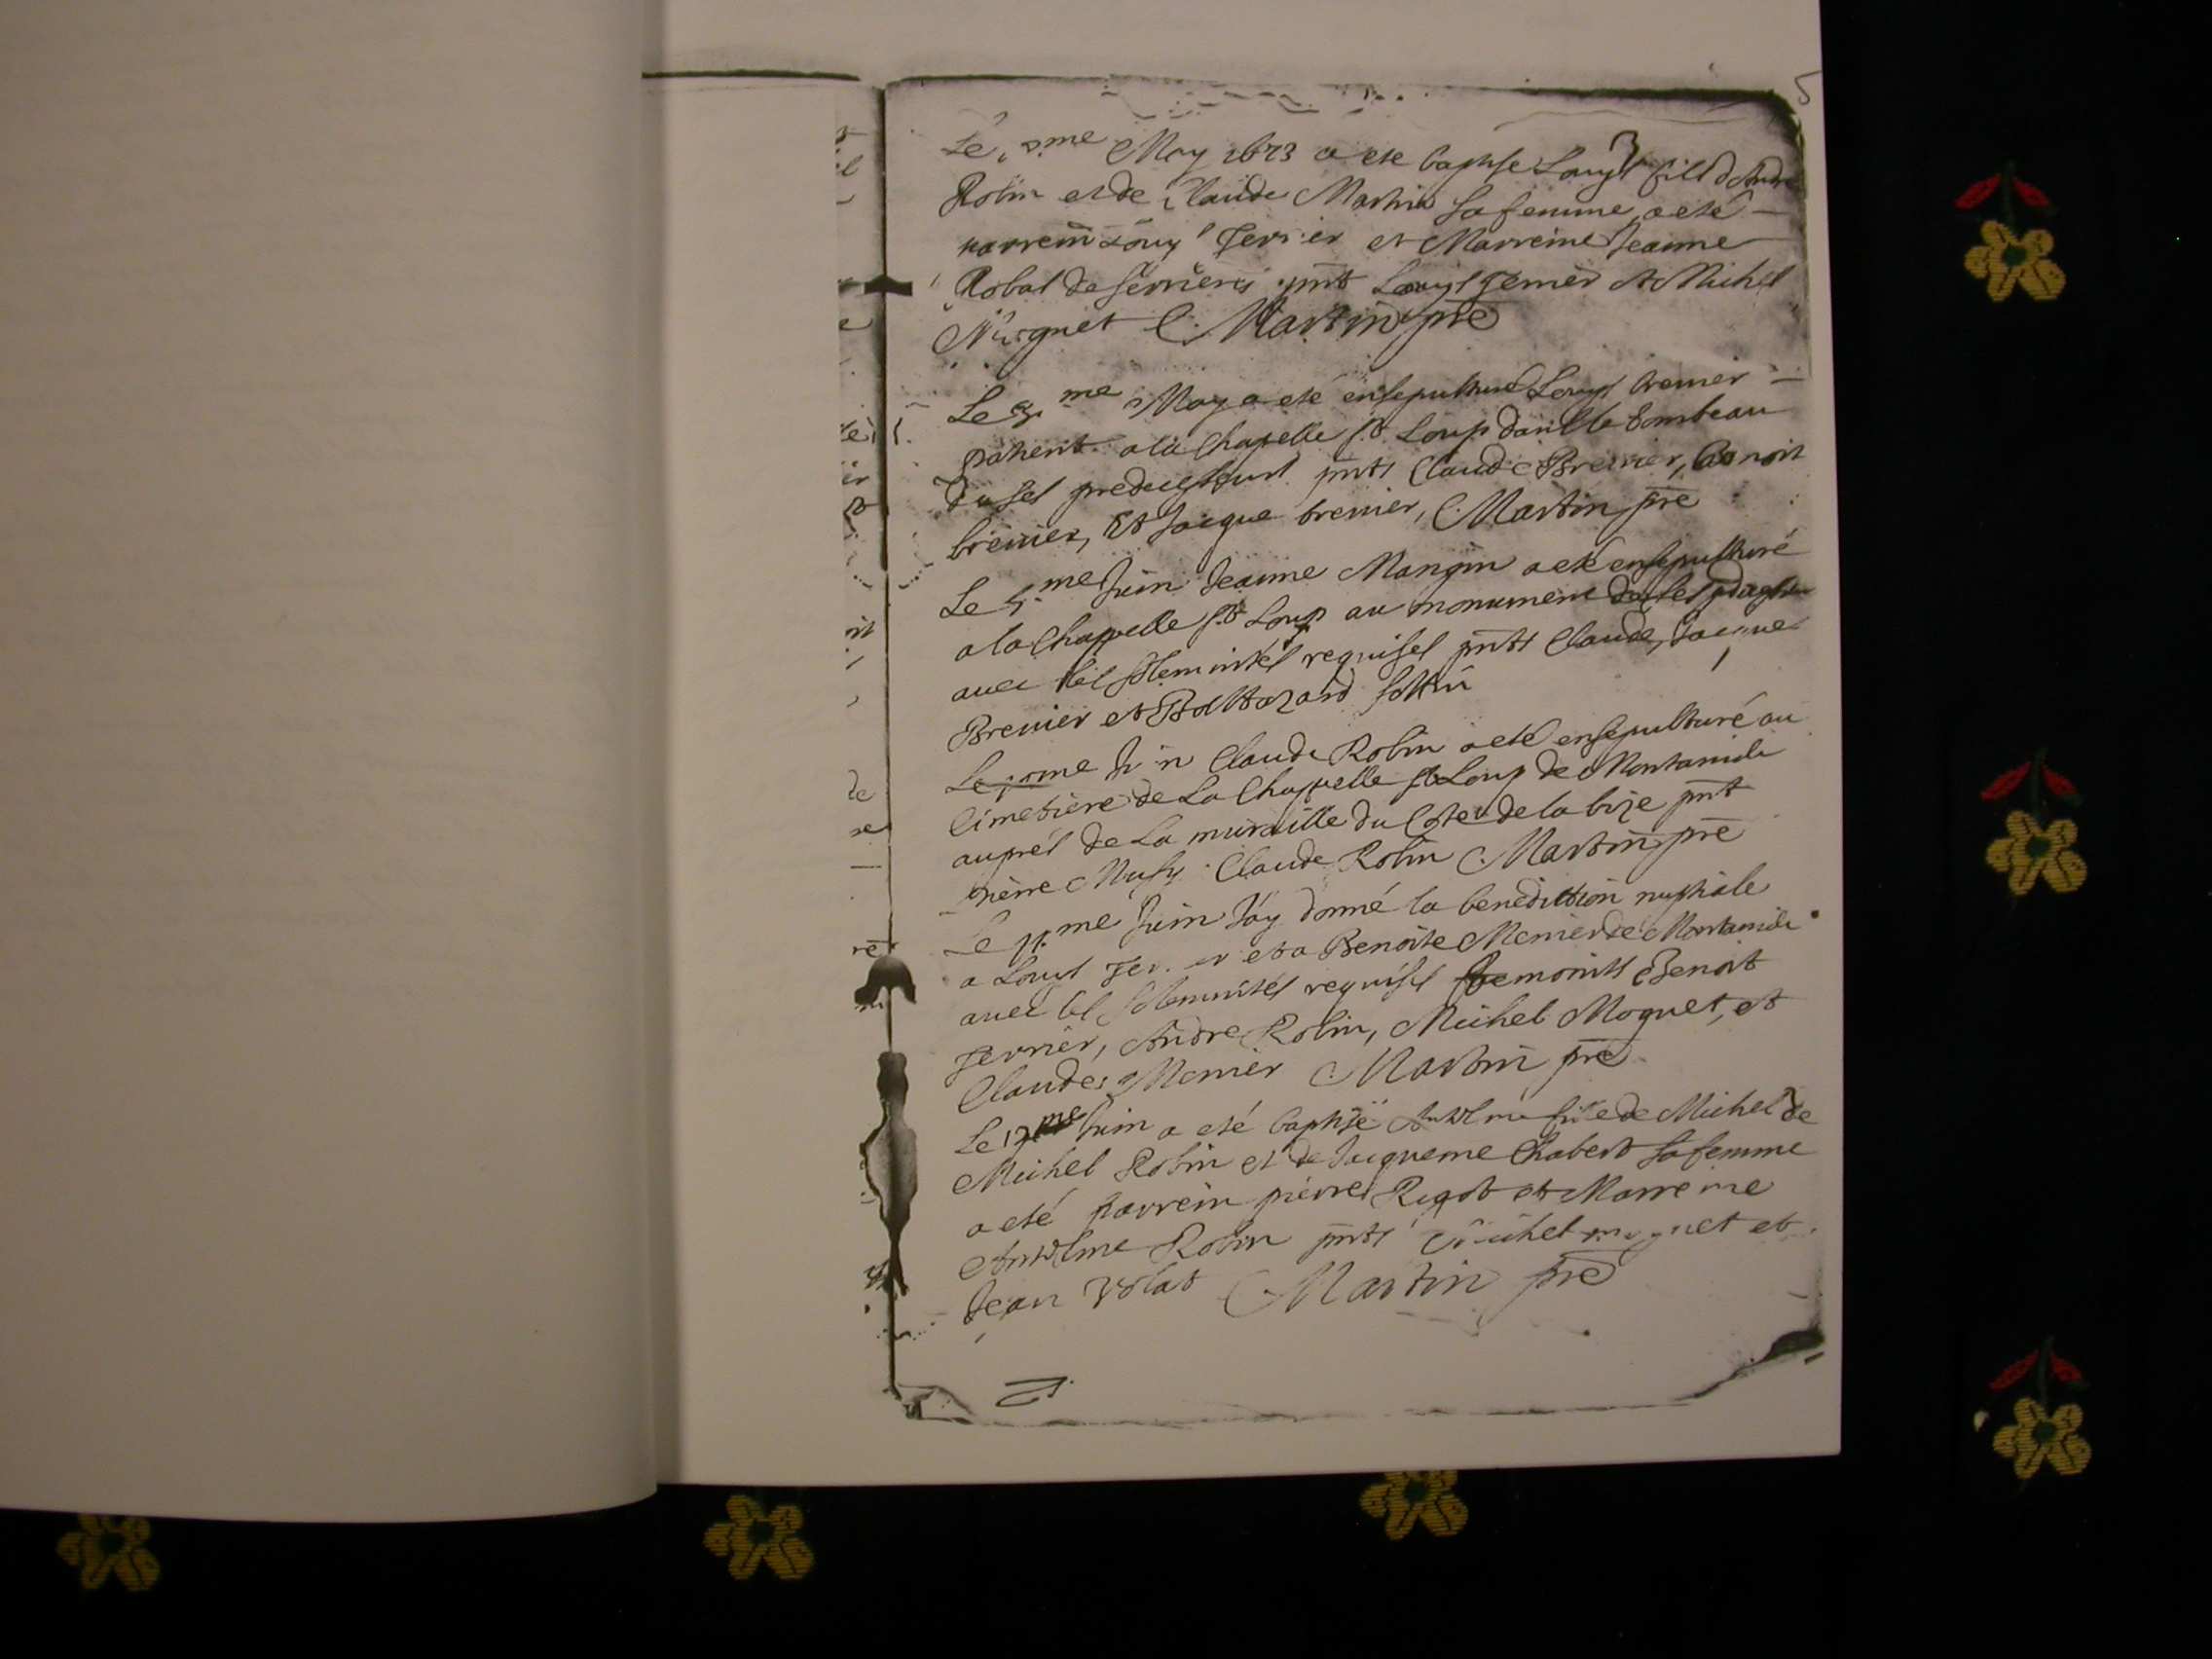 5
Le me May 1673 a ete baptise Louys fils d Andre
Robin et de Claude Martin sa femme, a eté
parrein Louys Ferrier et Marreine Jeanne
Robat de serrieres pnt Louys Ferrier et Michel
Muguet C. Martin pre
Le me May a eté ensepulturé Louys brenier
patient a la Chapelle st Loup dans le tombeau
du ses predecesseurs pnts Claude Brenier, benoit
brenier, Et Jacque brenier, C. Martin pre
Le 5.me Juin Jeanne Mangin a eté ensepulturé
a la Chappelle st Loup au monument de ses
avec les solemnités requises pnts Claude, Jacques
Brenier et Balthazard
Le me Juin Claude Robin a eté ensepulturé au
Cimetiere de La Chappelle st Loup de Montamide
auprés de La muraille du Coste de la bize pnt
pierre Musy Claude Robin C. Martin pre
Le 11.me Juin J'ay donné la benediction nuptiale
a Louys Fer er et a Benoite Menier de Montamide
avec les solemnités requises temoints Benoit
Ferrier, Andre Robin, Michel Moguet, et
Claudes Menier C. Martin pre
Le 17me Juin a eté baptisé Anthelme fille de Michel de
Michel Robin et de Jaqueme Chabert sa femme
a eté parrein pierre Rigot et Marreine
Anthelme Robin pnts Michel muguet et
Jean Volat C. Martin pre